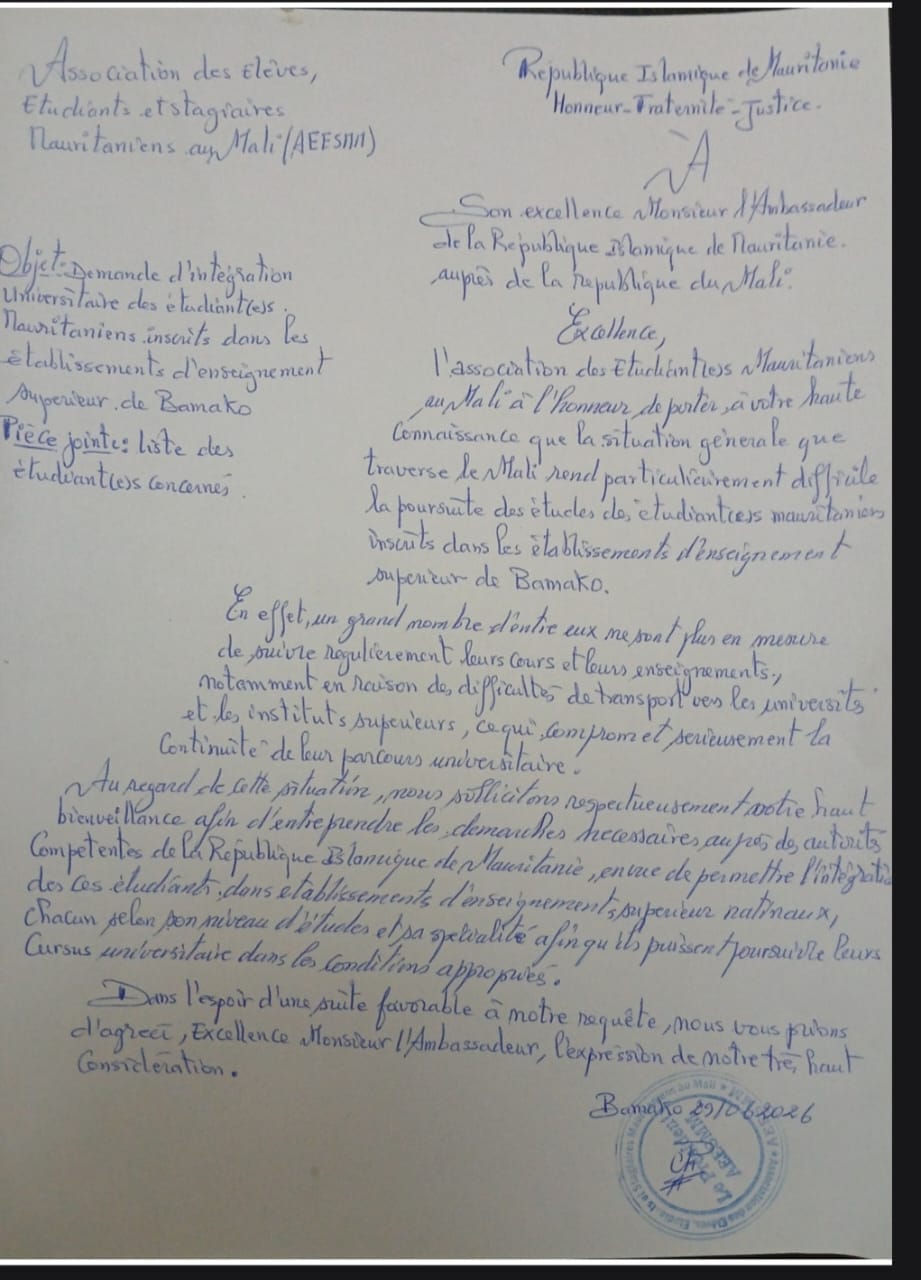 Association des Elèves,
Etudiants et stagiaires
Mauritaniens au Mali (AEESMM)
République Islamique de Mauritanie
Honneur-Fraternité-Justice.
À
Son excellence Monsieur l'Ambassadeur
de la République Islamique de Mauritanie.
auprès de la République du Mali.
Objet: Demande d'intégration
Universitaire des étudiant(e)s.
Mauritaniens inscrits dans les
établissements d'enseignement
superieur de Bamako
Pièce jointe: liste des
étudiant(e)s concernés.
Excellence,
l'association des Etudiant(e)s Mauritaniens
au Mali à l'honneur de porter, à votre haute
Connaissance que la situation générale que
traverse le Mali rend particulièrement difficile
la poursuite des études des étudiant(e)s mauritaniens
inscrits dans les établissements d'enseignement
superieur de Bamako.
En effet, un grand nombre d'entre eux ne sont plus en mesure
de suivre regulièrement leurs cours et leurs enseignements,
notamment en raison des difficultés de transport vers les universités
et les instituts superieurs, ce qui compromet serieusement la
Continuité de leur parcours universitaire.
Au regard de cette situation, nous sollicitons respectueusement votre haut
bienveillance afin d'entreprendre les demarches necessaires auprès des autorités
Compétentes de la République Islamique de Mauritanie, en vue de permettre l'intégration
des ces étudiants dans etablissements d'enseignement superieur natinaux,
chacun selon son niveau d'études et sa spécialité afin qu'ils puissent poursuivre leurs
Cursus universitaire dans les conditions appropriés.
Dans l'espoir d'une suite favorable à notre requête, nous vous prions
d'agreéi, Excellence Monsieur l'Ambassadeur, l'expression de notre très haut
Considération.
Bamako 29/06/2026
Le Président
AEESMM